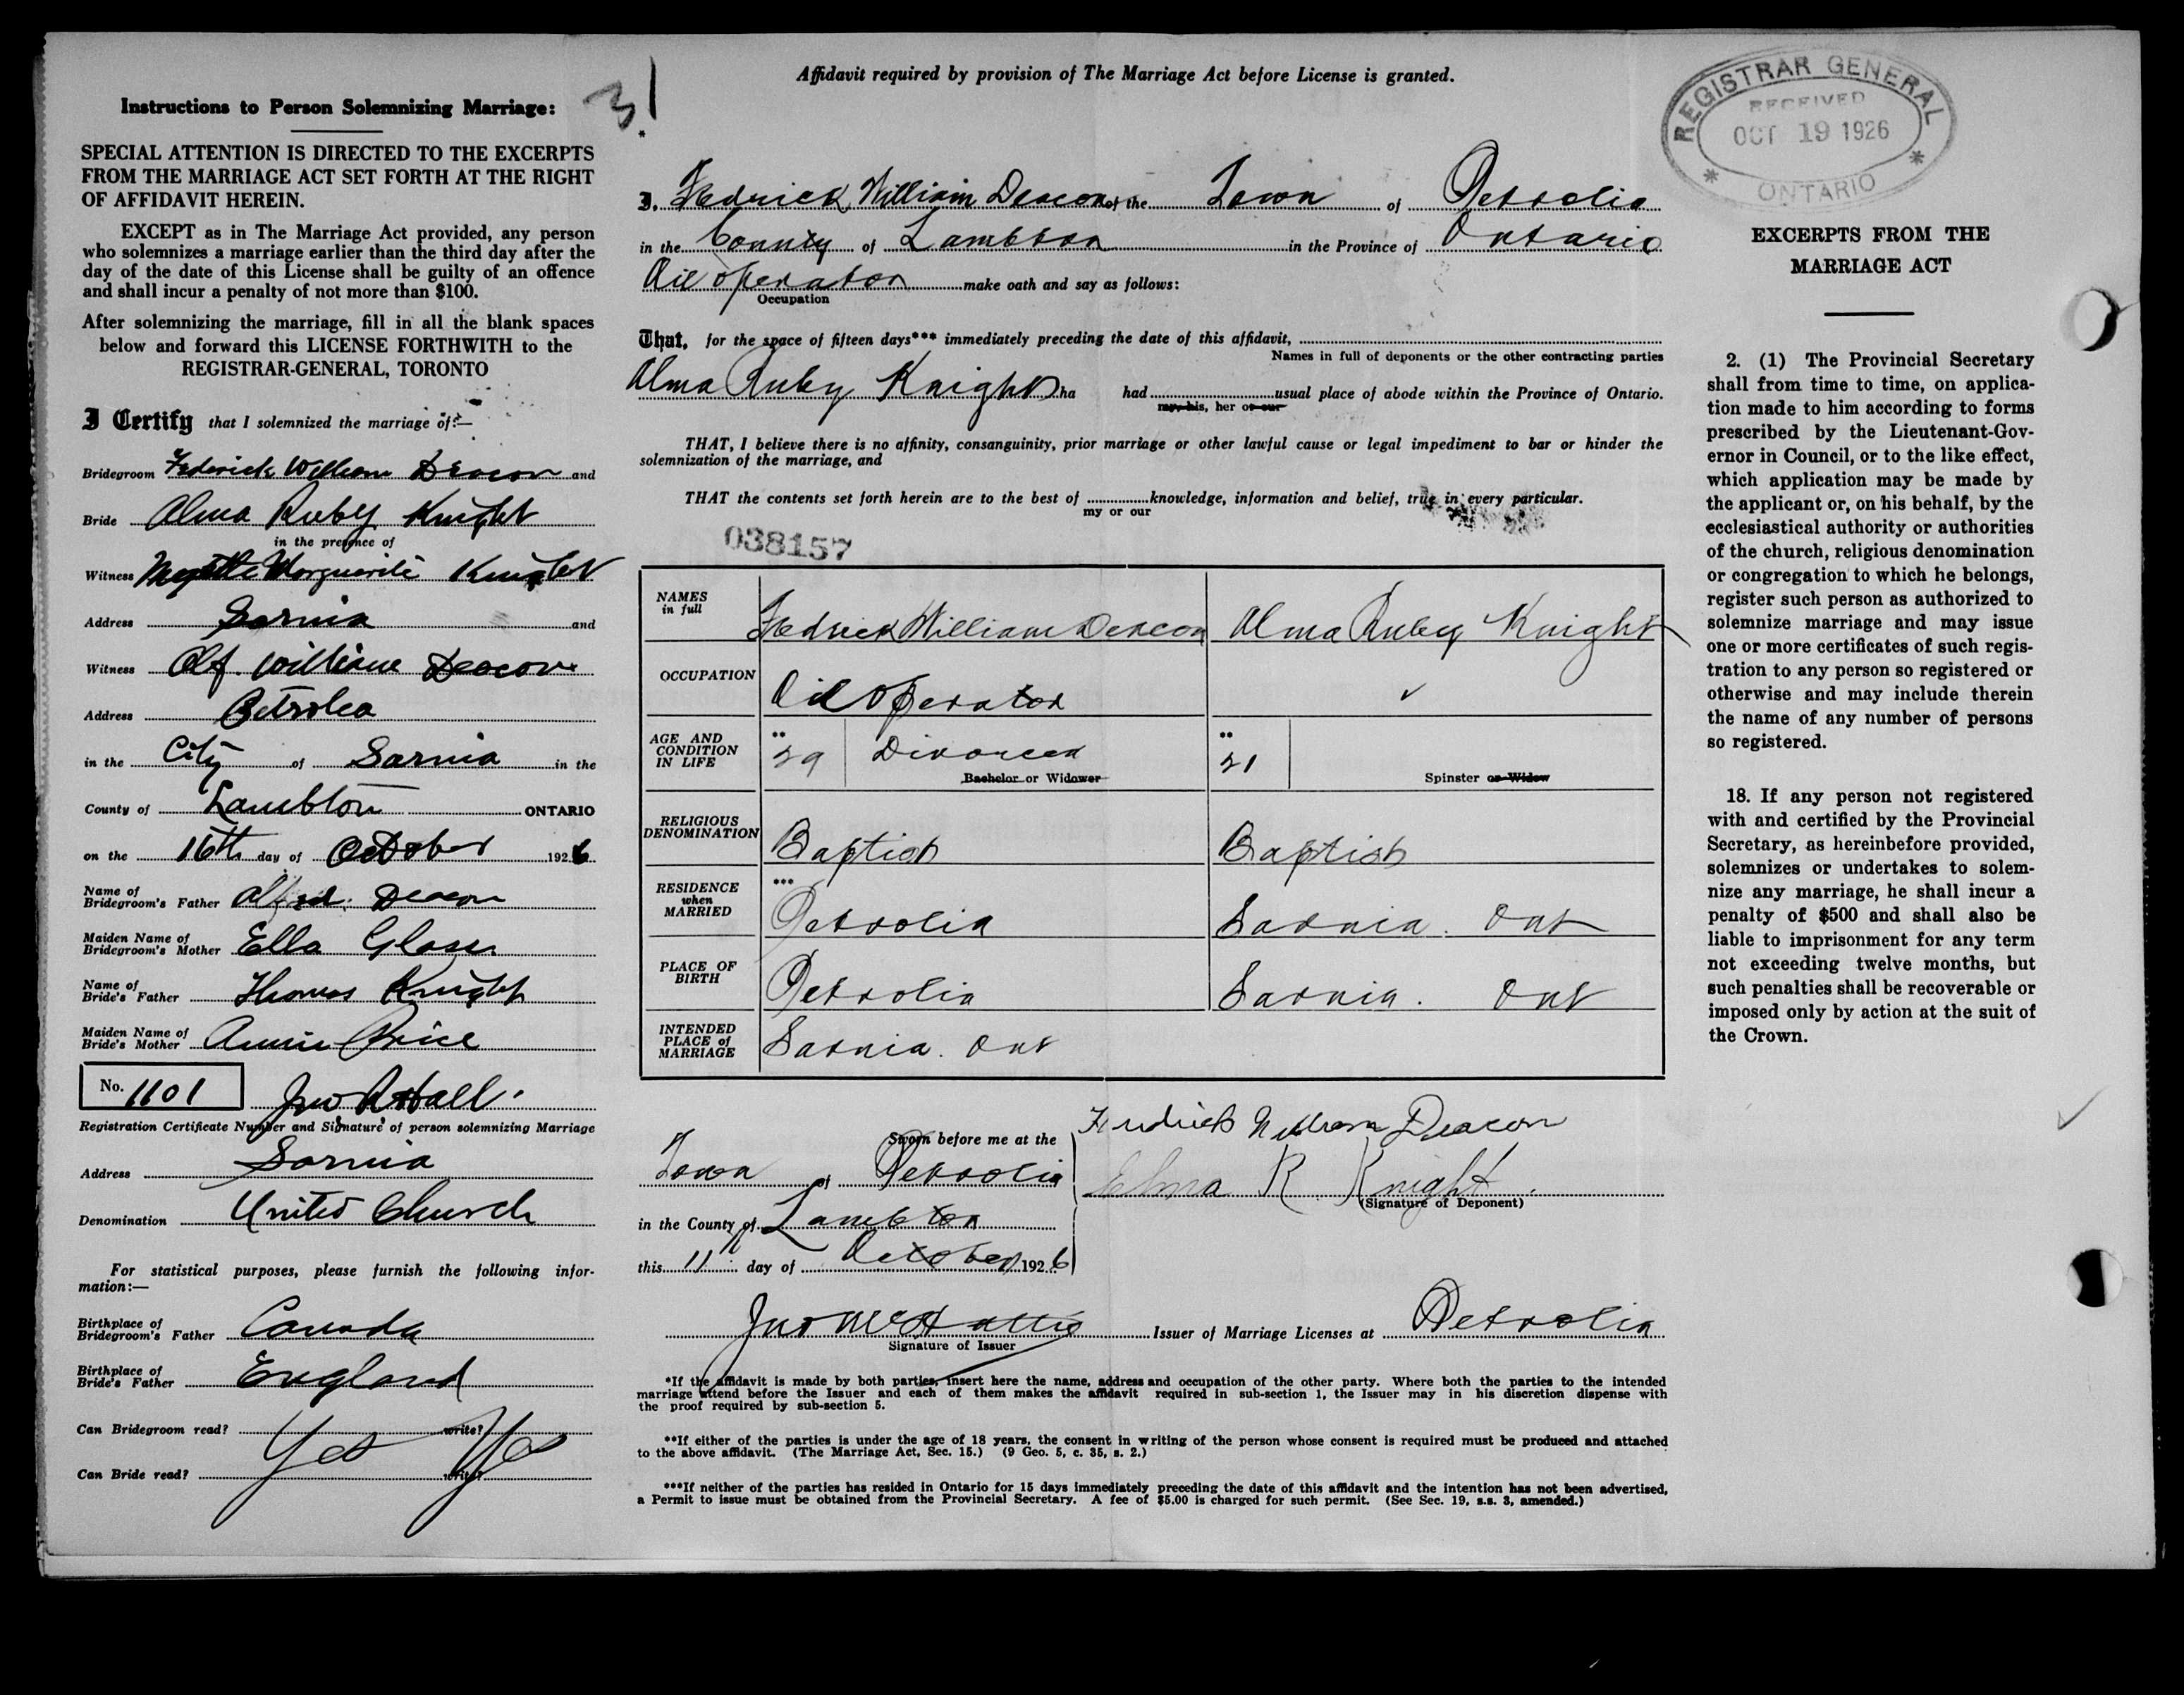 Instructions to Person Solemnizing Marriage:
SPECIAL ATTENTION IS DIRECTED TO THE EXCERPTS
FROM THE MARRIAGE ACT SET FORTH AT THE RIGHT
OF AFFIDAVIT HEREIN.
EXCEPT as in The Marriage Act provided, any person
who solemnizes a marriage earlier than the third day after the
day of the date of this License shall be guilty of an offence
and shall incur a penalty of not more than $100.
After solemnizing the marriage, fill in all the blank spaces
below and forward this LICENSE FORTHWITH to the
REGISTRAR-GENERAL, TORONTO
I Certify that I solemnized the marriage of:—
Bridegroom Federick William Deacon and
Bride Alma Ruby Knight
in the presence of
Witness Marguerite Knight
Address Sarnia and
Witness Alf. William Deacon
Address Petrolea
in the City of Sarnia in the
County of Lambton ONTARIO
on the 16th day of October 1926
Name of
Bridegroom's Father Alfred Deacon
Maiden Name of
Bridegroom's Mother Ella
Name of
Bride's Father Thomas Knight
Maiden Name of
Bride's Mother Annie Price
No. 1101 Jno R Hall.
Registration Certificate Number and Signature of person solemnizing Marriage
Address Sarnia
Denomination United Church
For statistical purposes, please furnish the following infor-
mation:—
Birthplace of
Bridegroom's Father Canada
Birthplace of
Bride's Father England
Can Bridegroom read? write?
Yes Yes
Can Bride read? write?
31
Affidavit required by provision of The Marriage Act before License is granted.
I, Fedrick William Deacon of the Town of Petrolia
in the County of Lambton in the Province of Ontario
Oil operator make oath and say as follows:
Occupation
That, for the space of fifteen days*** immediately preceding the date of this affidavit,
Names in full of deponents or the other contracting parties
Alma Ruby Knight ha had usual place of abode within the Province of Ontario.
my, his, her or our
THAT, I believe there is no affinity, consanguinity, prior marriage or other lawful cause or legal impediment to bar or hinder the
solemnization of the marriage, and
THAT the contents set forth herein are to the best of knowledge, information and belief, true in every particular.
my or our
038157
NAMES
in full
Fedrick William Deacon Alma Ruby Knight
OCCUPATION Oil operator
AGE AND
CONDITION
IN LIFE
** 29 Divorced ** 21
Bachelor or Widower Spinster or Widow
RELIGIOUS
DENOMINATION
Baptist Baptist
RESIDENCE
when
MARRIED
*** Petrolia Sarnia. Ont
PLACE OF
BIRTH
Petrolia Sarnia. Ont
INTENDED
PLACE of
MARRIAGE
Sarnia. Ont
Sworn before me at the
Town of Petrolia
in the County of Lambton
this 11 day of October 1926
Fredrick William Deacon
Elma R. Knight.
(Signature of Deponent)
Jno McHattie Issuer of Marriage Licenses at Petrolia
Signature of Issuer
*If the affidavit is made by both parties, insert here the name, address and occupation of the other party. Where both the parties to the intended
marriage attend before the Issuer and each of them makes the affidavit required in sub-section 1, the Issuer may in his discretion dispense with
the proof required by sub-section 5.
**If either of the parties is under the age of 18 years, the consent in writing of the person whose consent is required must be produced and attached
to the above affidavit. (The Marriage Act, Sec. 15.) (9 Geo. 5, c. 35, s. 2.)
***If neither of the parties has resided in Ontario for 15 days immediately preceding the date of this affidavit and the intention has not been advertised,
a Permit to issue must be obtained from the Provincial Secretary. A fee of $5.00 is charged for such permit. (See Sec. 19, s.s. 3, amended.)
REGISTRAR GENERAL
RECEIVED
OCT 19 1926
ONTARIO
EXCERPTS FROM THE
MARRIAGE ACT
2. (1) The Provincial Secretary
shall from time to time, on applica-
tion made to him according to forms
prescribed by the Lieutenant-Gov-
ernor in Council, or to the like effect,
which application may be made by
the applicant or, on his behalf, by the
ecclesiastical authority or authorities
of the church, religious denomination
or congregation to which he belongs,
register such person as authorized to
solemnize marriage and may issue
one or more certificates of such regis-
tration to any person so registered or
otherwise and may include therein
the name of any number of persons
so registered.
18. If any person not registered
with and certified by the Provincial
Secretary, as hereinbefore provided,
solemnizes or undertakes to solem-
nize any marriage, he shall incur a
penalty of $500 and shall also be
liable to imprisonment for any term
not exceeding twelve months, but
such penalties shall be recoverable or
imposed only by action at the suit of
the Crown.